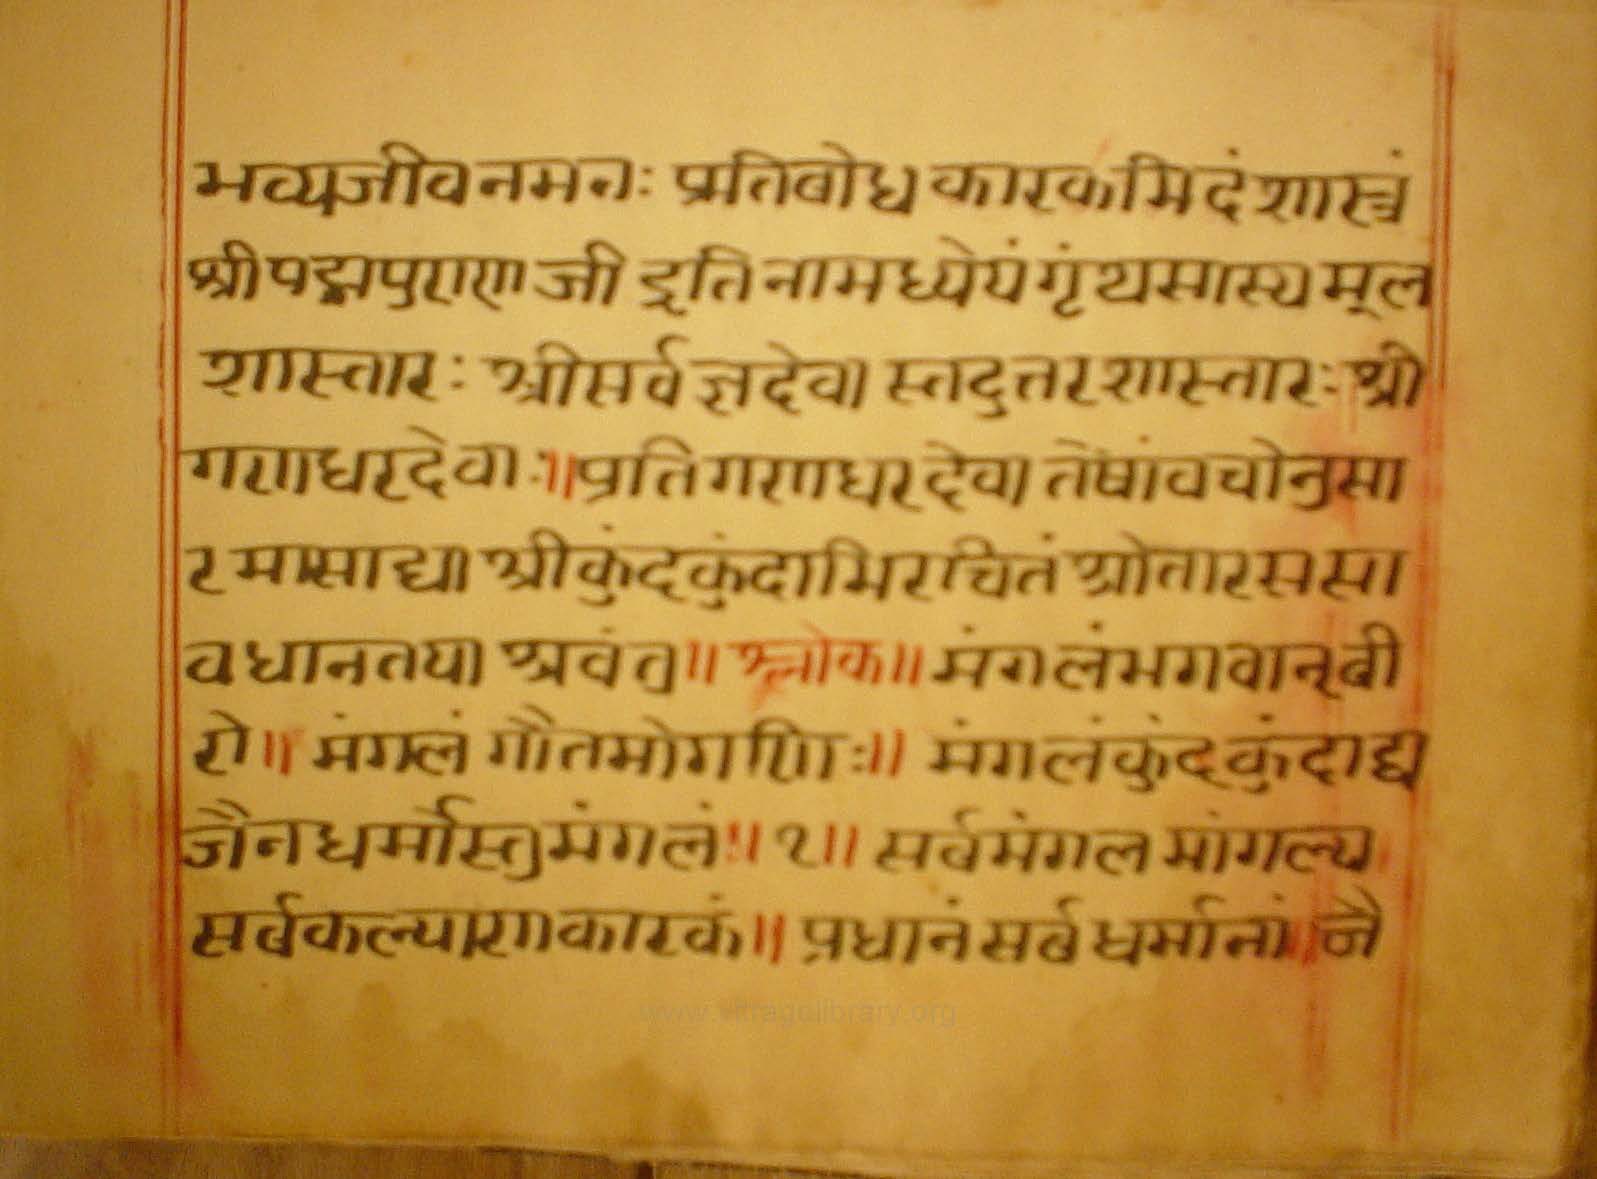 भव्यजीवनमनः प्रतिबोध कारकमिदं शास्त्रं
श्रीपद्मपुराण जी इति नामध्येयं गृंथसास्य मूल
शास्तारः श्रीसर्वज्ञदेवा स्तदुत्तरशास्तारः श्री
गणधरदेवाः॥ प्रतिगणधरदेवा तेषांवचोनुसा
रमासाद्या श्रीकुंदकुंदाभिरचितं श्रोतारससा
वधानतया श्रवंतु॥ श्लोक॥ मंगलंभगवान्वी
रो॥ मंगलं गौतमोगणिः॥ मंगलंकुंदकुंदाद्य
जैनधर्मोस्तुमंगलं॥ १॥ सर्वमंगल मांगल्य
सर्वकल्याणकारकं॥ प्रधानं सर्वधर्मानां॥ जै
www.vitragolibrary.org